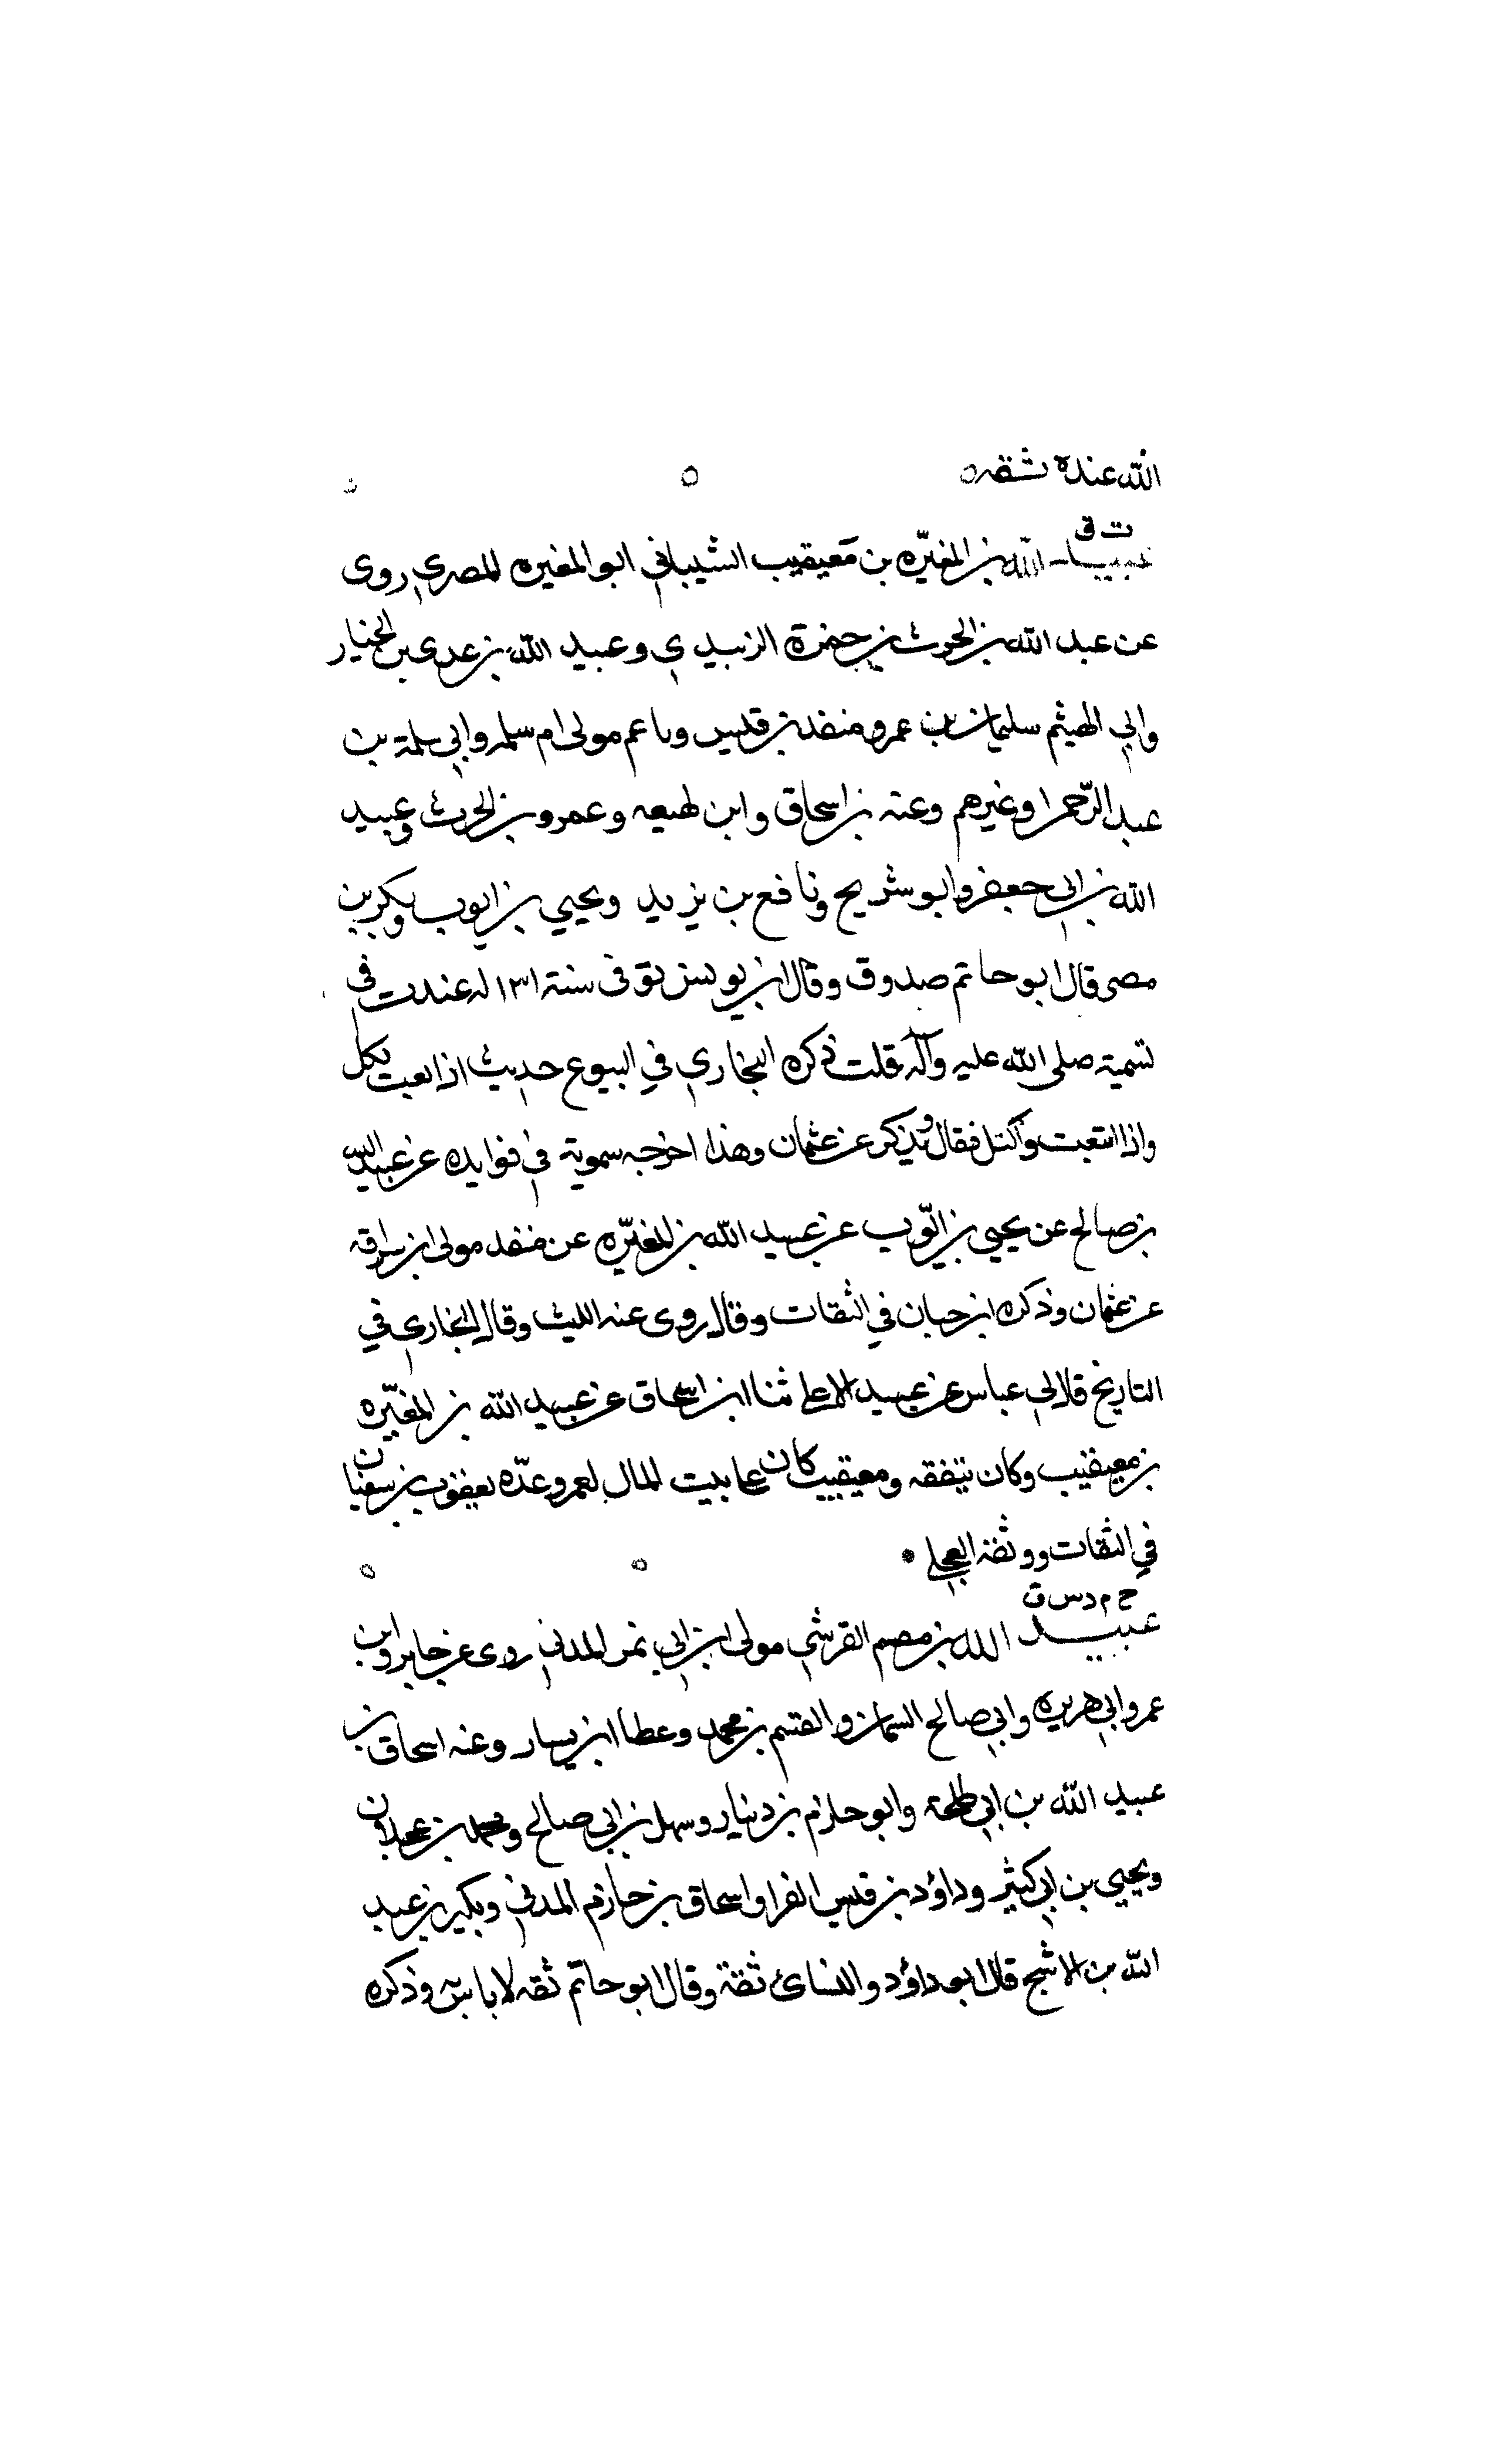 الله عنده ثقه
ت ق
عبيد الله بن المغيره بن معيقيب الشيباني ابو المغيره المصري روى
عن عبد الله بن الحرث بن جمزة الزبيدي وعبيد الله بن عدي بن الخيار
وابي الهيثم سليمان بن عمرو منقذ بن قيس وناعم مولى ام سلمه وابي سلمة بن
عبد الرحمن وغيرهم وعنه بن اسحاق وابن لهيعه وعمرو بن الحرث وعبيد
الله بن ابي جعفر وابو شريح ونافع بن يزيد ويحيي بن ايوب وبكر بن
مضر قال ابو حاتم صدوق وقال ابن يونس توفى سنة ١٣١ له عند ت في
تسمية صلى الله عليه وآله قلت ذكره البخاري في البيوع حديث اذا بعت فكل
واذا ابتعت واكتل فقال ويذكر عن عثمان وهذا اخرجه سموية في فوايده عن عبد الله
بن صالح عن يحيي بن ايوب عن عبيد الله بن المغيره عن منقذ مولى ابن سراقه
عن عثمان وذكره ابن حبان في الثقات وقال روى عنه الليث وقال البخاري في
التاريخ قال لي عباس عن عبيد الاعلى ثنا ابن اسحاق عن عبيد الله بن المغيره
بن معيقيب وكان يتفقه ومعيقيب كان على بيت المال لعمر وعده يعقوب بن سفيان
في الثقات ووثقه العجلي
خ م د س ق
عبيد الله بن مقسم القرشي مولى ابن ابي نمر المدني روى عن جابر وابن
عمر وابي هريره وابي صالح السمان والقسم بن محمد وعطا ابن يسار وعنه اسحاق بن
عبيد الله بن ابي طلحة وابو حازم بن دينار وسهل بن ابي صالح ومحمد بن عجلان
ويحيي بن ابي كثير وداؤد بن قيس الفرا واسحاق بن حازم المدني وبكير بن عبد
الله بن الاشج قال ابو داؤد والنسائ ثقة وقال ابو حاتم ثقه لا باس به وذكره